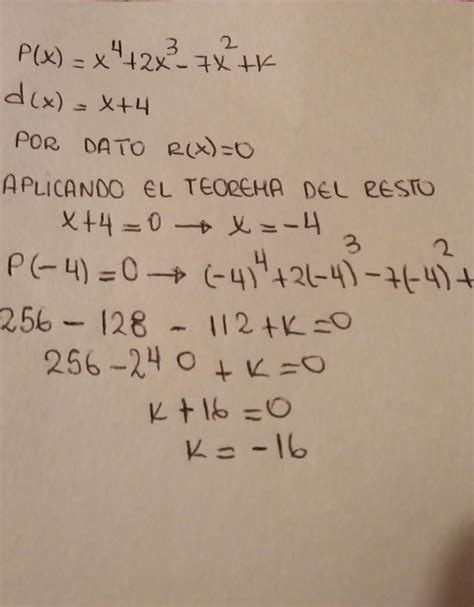 P(x) = x⁴+2x³-7x²+k
d(x) = x+4
POR DATO R(x)=0
APLICANDO EL TEOREMA DEL RESTO
x+4=0 → x=-4
P(-4)=0 → (-4)⁴+2(-4)³-7(-4)²+
256 - 128 - 112+k=0
256-240 + k=0
k+16=0
k=-16